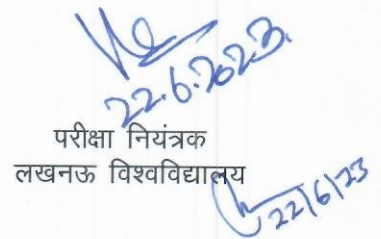 22.6.2023.
परीक्षा नियंत्रक
लखनऊ विश्वविद्यालय
22/6/23